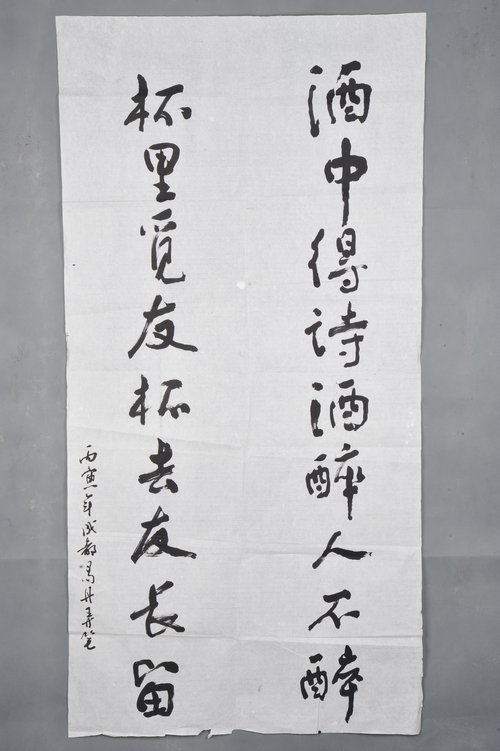 酒中得诗酒醉人不醉
杯里觅友杯去友长留
丙寅年成都冯丹弄笔